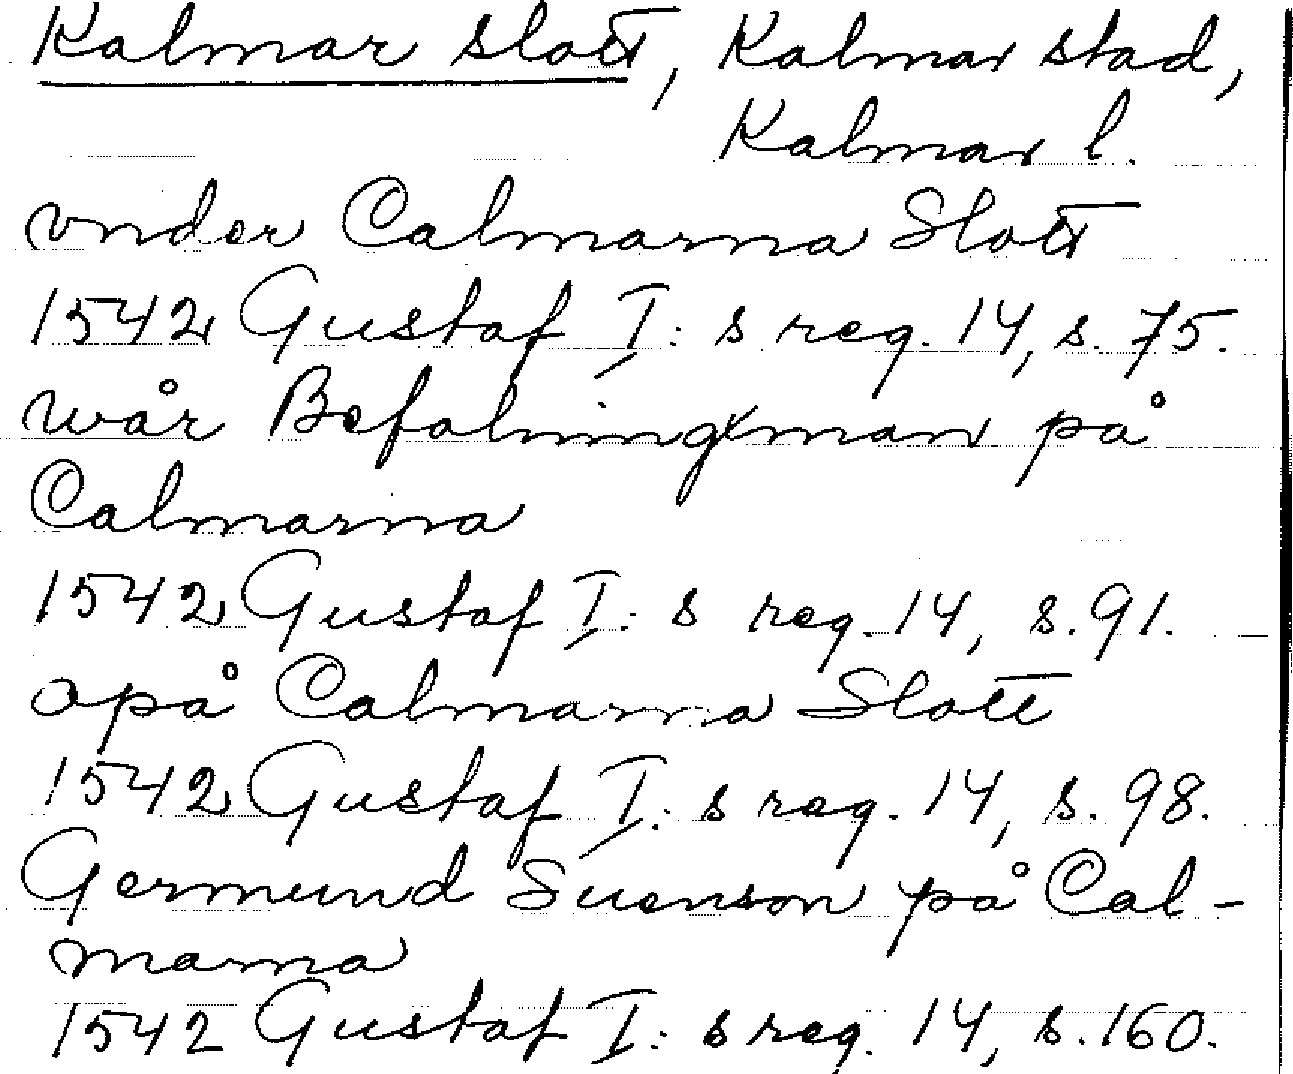 Kalmar slott, Kalmar stad,
Kalmar l.
vnder Calmarna Slott
1542 Gustaf I: s reg. 14, s. 75.
wår Befalningxman på
Calmarna
1542 Gustaf I: s reg. 14, s. 91.
opå Calmarna Slott
1542 Gustaf I: s reg. 14, s. 98.
Germund Suenson på Cal-
marna
1542 Gustaf I: s reg. 14, s. 160.